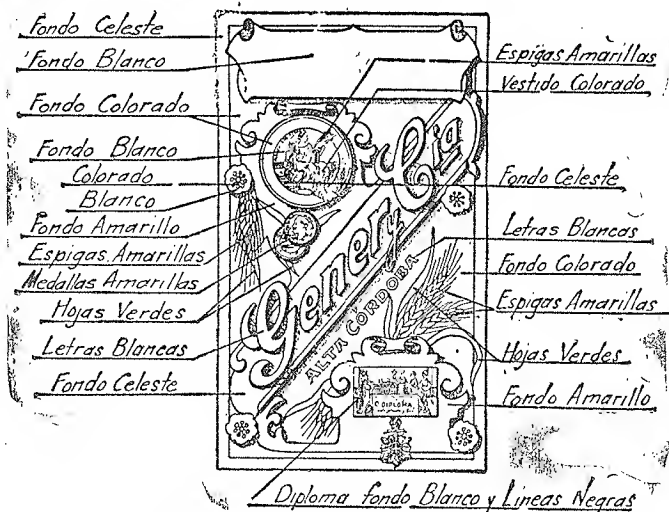 Fondo Celeste
Fondo Blanco
Fondo Colorado
Fondo Blanco
Colorado
Blanco
Fondo Amarillo
Espigas Amarillas
Medallas Amarillas
Hojas Verdes
Letras Blancas
Fondo Celeste
Gener y Cía
ALTA CORDOBA
DIPLOMA
Espigas Amarillas
Vestido Colorado
Fondo Celeste
Letras Blancas
Fondo Colorado
Espigas Amarillas
Hojas Verdes
Fondo Amarillo
Diploma fondo Blanco y Líneas Negras